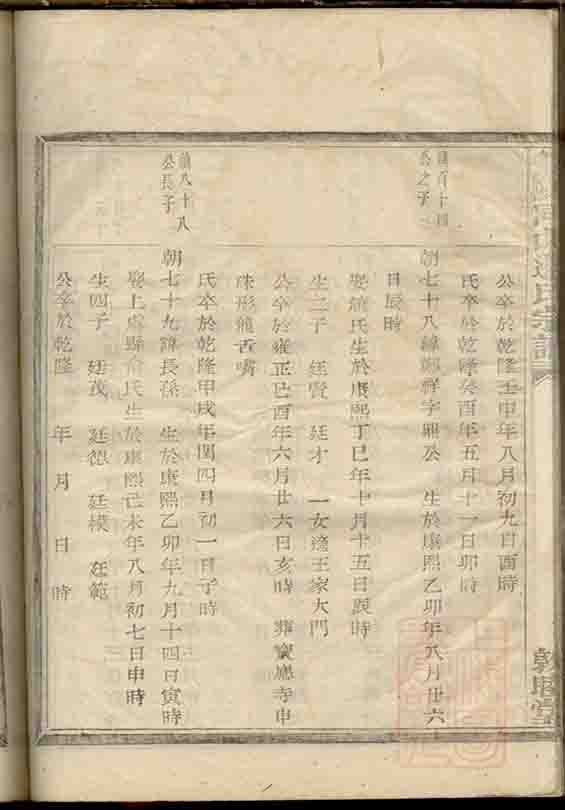 氏宗譜
乾
堂
公卒於乾隆壬申年八月初九日酉時
氏卒於乾隆癸酉年五月十一日卯時
朝七十八諱 祥字 公 生於康熙乙卯年八月廿六
日辰時
娶 氏生於康熙丁巳年十月十五日辰時
生二子 廷賢 廷才 一女適王家大門
公卒於雍正己酉年六月廿六日亥時 葬寶應寺申
珠形龍舌嘴
氏卒於乾隆甲戌年閏四月初一日子時
八十八
公長子
朝七十九諱長孫 生於康熙乙卯年九月十四日寅時
娶上虞縣俞氏生於康熙己未年八月初七日申時
生四子 廷茂 廷德 廷模 廷範
公卒於乾隆 年 月 日 時